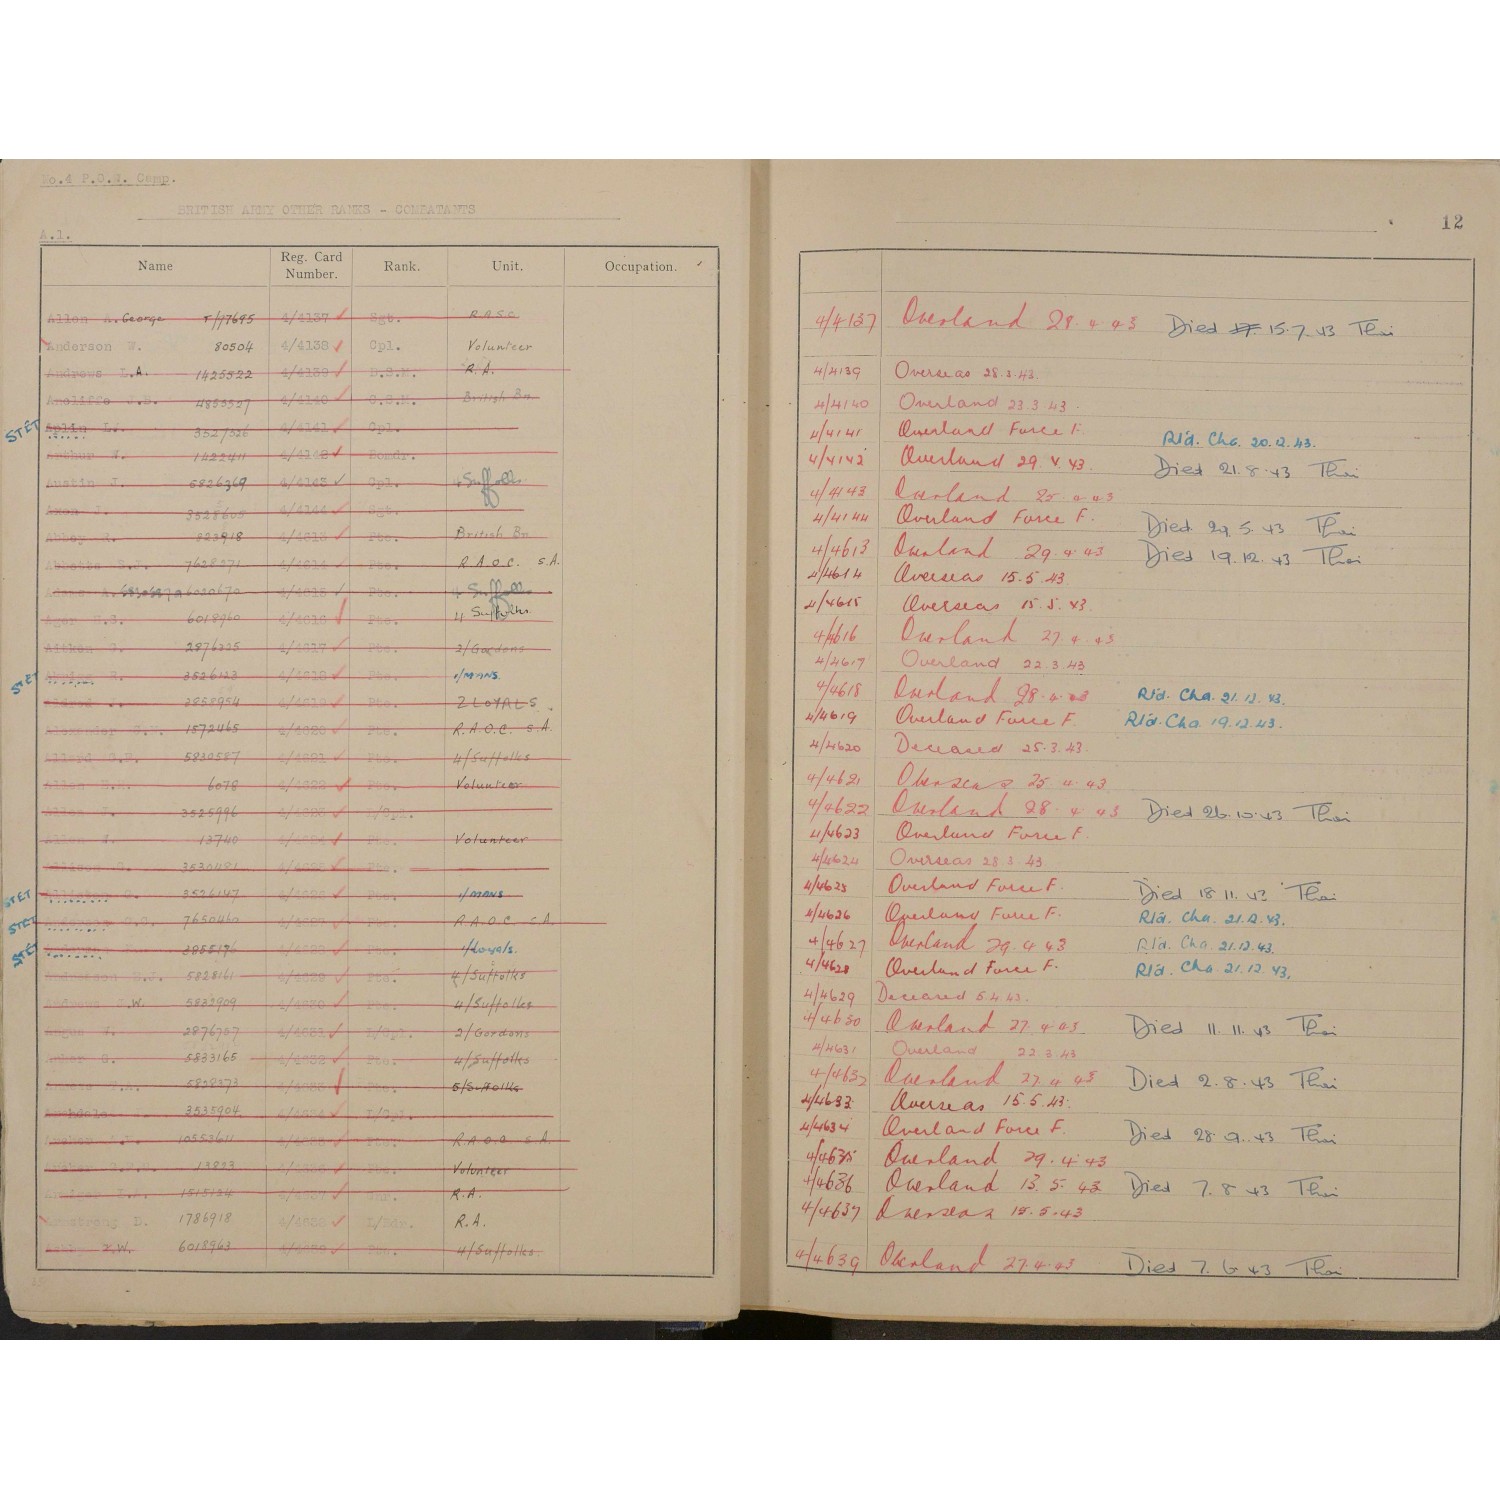 No.4 P.O.W. Camp.
BRITISH ARMY OTHER RANKS - COMBATANTS
A.1.
Name Reg. Card Number. Rank. Unit. Occupation.
Allen A. George T/47695 4/4137 Sgt. R.A.S.C.
Anderson W. 80504 4/4138 Cpl. Volunteer
Andrews L.A. 1425522 4/4139 B.S.M. R.A.
4853597 4/4140 C.S.M. British Bn
STET Aplin L. 3527326 4/4141 Cpl.
Arthur W. 1422411 4/4142 Bombdr.
Austin J. 5826369 4/4143 Cpl. 4 Suffolks
3528605 4/4144 Sgt.
Abbey 4/4613 Pte. British Bn
7628271 4/4614 Pte. R.A.O.C. S.A.
Adams A. 4/4615 Pte. 4 Suffolks
Ager 6018960 4/4616 Pte. 4 Suffolks
Aitken 2876225 4/4617 Pte. 2/Gordons
STET 3526123 4/4618 Pte. 1/MANS.
3858954 4/4619 Pte. 2 LOYALS.
Alexander 1572465 4/4620 Pte. R.A.O.C. S.A.
Allard 5830587 4/4621 Pte. 4/Suffolks
Allen 6078 4/4622 Pte. Volunteer
Allen J. 3525996 4/4623 L/Cpl.
Allen 13740 4/4624 Pte. Volunteer
3530481 4/4625 Pte.
STET 3526147 4/4626 Pte. 1/MANS
STET 7650460 4/4627 Pte. R.A.O.C. S.A.
STET 3855176 4/4628 Pte. 1/Loyals.
5828161 4/4629 Pte. 4/Suffolks
Andrews W. 5832909 4/4630 Pte. 4/Suffolks
Angus 2876707 4/4631 L/Cpl. 2/Gordons
5833165 4/4632 Pte. 4/Suffolks
5828373 4/4633 Pte. 5/Suffolks
3535904 4/4634 L/Cpl.
10553611 4/4635 Pte. R.A.O.C. S.A.
13823 4/4636 Pte. Volunteer
1515124 4/4637 Gnr. R.A.
Armstrong D. 1786918 4/4638 L/Bdr. R.A.
W. 6018963 4/4639 Pte. 4/Suffolks.
12
4/4137 Overland 29.4.43 Died 15.7.43 Thai
4/4139 Overseas 28.3.43.
4/4140 Overland 23.3.43.
4/4141 Overland Force F. Rld. Cha. 20.12.43.
4/4142 Overland 29.4.43. Died 21.8.43 Thai
4/4143 Overland 25.4.43
4/4144 Overland Force F. Died 29.5.43 Thai
4/4613 Overland 29.4.43 Died 19.12.43 Thai
4/4614 Overseas 15.5.43
4/4615 Overseas 15.5.43.
4/4616 Overland 27.4.43
4/4617 Overland 22.3.43
4/4618 Overland 28.4.43 Rld. Cha. 21.12.43.
4/4619 Overland Force F. Rld. Cha. 19.12.43.
4/4620 Deceased 25.3.43.
4/4621 Overseas 25.4.43
4/4622 Overland 28.4.43 Died 26.10.43 Thai
4/4623 Overland Force F.
4/4624 Overseas 28.3.43
4/4625 Overland Force F. Died 18.11.43 Thai
4/4626 Overland Force F. Rld. Cha. 21.12.43.
4/4627 Overland 29.4.43 Rld. Cha. 21.12.43.
4/4628 Overland Force F. Rld. Cha. 21.12.43.
4/4629 Deceased 5.4.43.
4/4630 Overland 27.4.43 Died 11.11.43 Thai
4/4631 Overland 22.3.43
4/4632 Overland 27.4.43 Died 2.8.43 Thai
4/4633 Overseas 15.5.43.
4/4634 Overland Force F. Died 28.9.43 Thai
4/4635 Overland 29.4.43
4/4636 Overland 13.5.43 Died 7.8.43 Thai
4/4637 Overseas 15.5.43
4/4639 Overland 27.4.43 Died 7.6.43 Thai